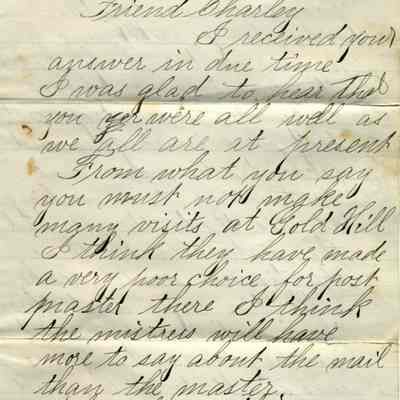 Friend Charley
I received your
answer in due time
I was glad to hear that
you were all well as
we all are at present
From what you say
you must not make
many visits at Gold Hill
I think they have made
a very poor choice for post
master there I think
the mistress will have
more to say about the mail
than the master.